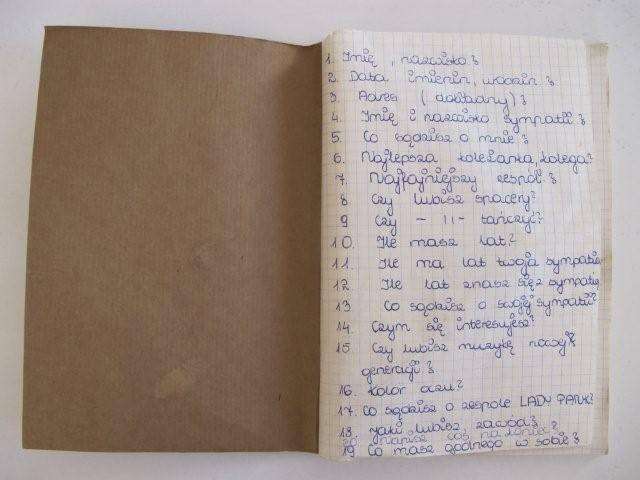 1. Imię, nazwisko?
2. Data imienin, urodzin?
3. Adres (dokładny)?
4. Imię i nazwisko sympatii?
5. Co sądzisz o mnie?
6. Najlepsza koleżanka, kolega?
7. Najfajniejszy zespół?
8 Czy lubisz spacery?
9 Czy - 11 - tańczyć?
10. Ile masz lat?
11. Ile ma lat twoja sympatia
12 Ile lat znasz się z sympatią
13 Co sądzisz o swojej sympatii?
14. Czym się interesujesz?
15 Czy lubisz muzykę nowej
generacji?
16. Kolor oczu?
17. Co sądzisz o zespole LADY PANK?
18. Jaki lubisz zawód?
napisz coś na
19 Co masz godnego w sobie?